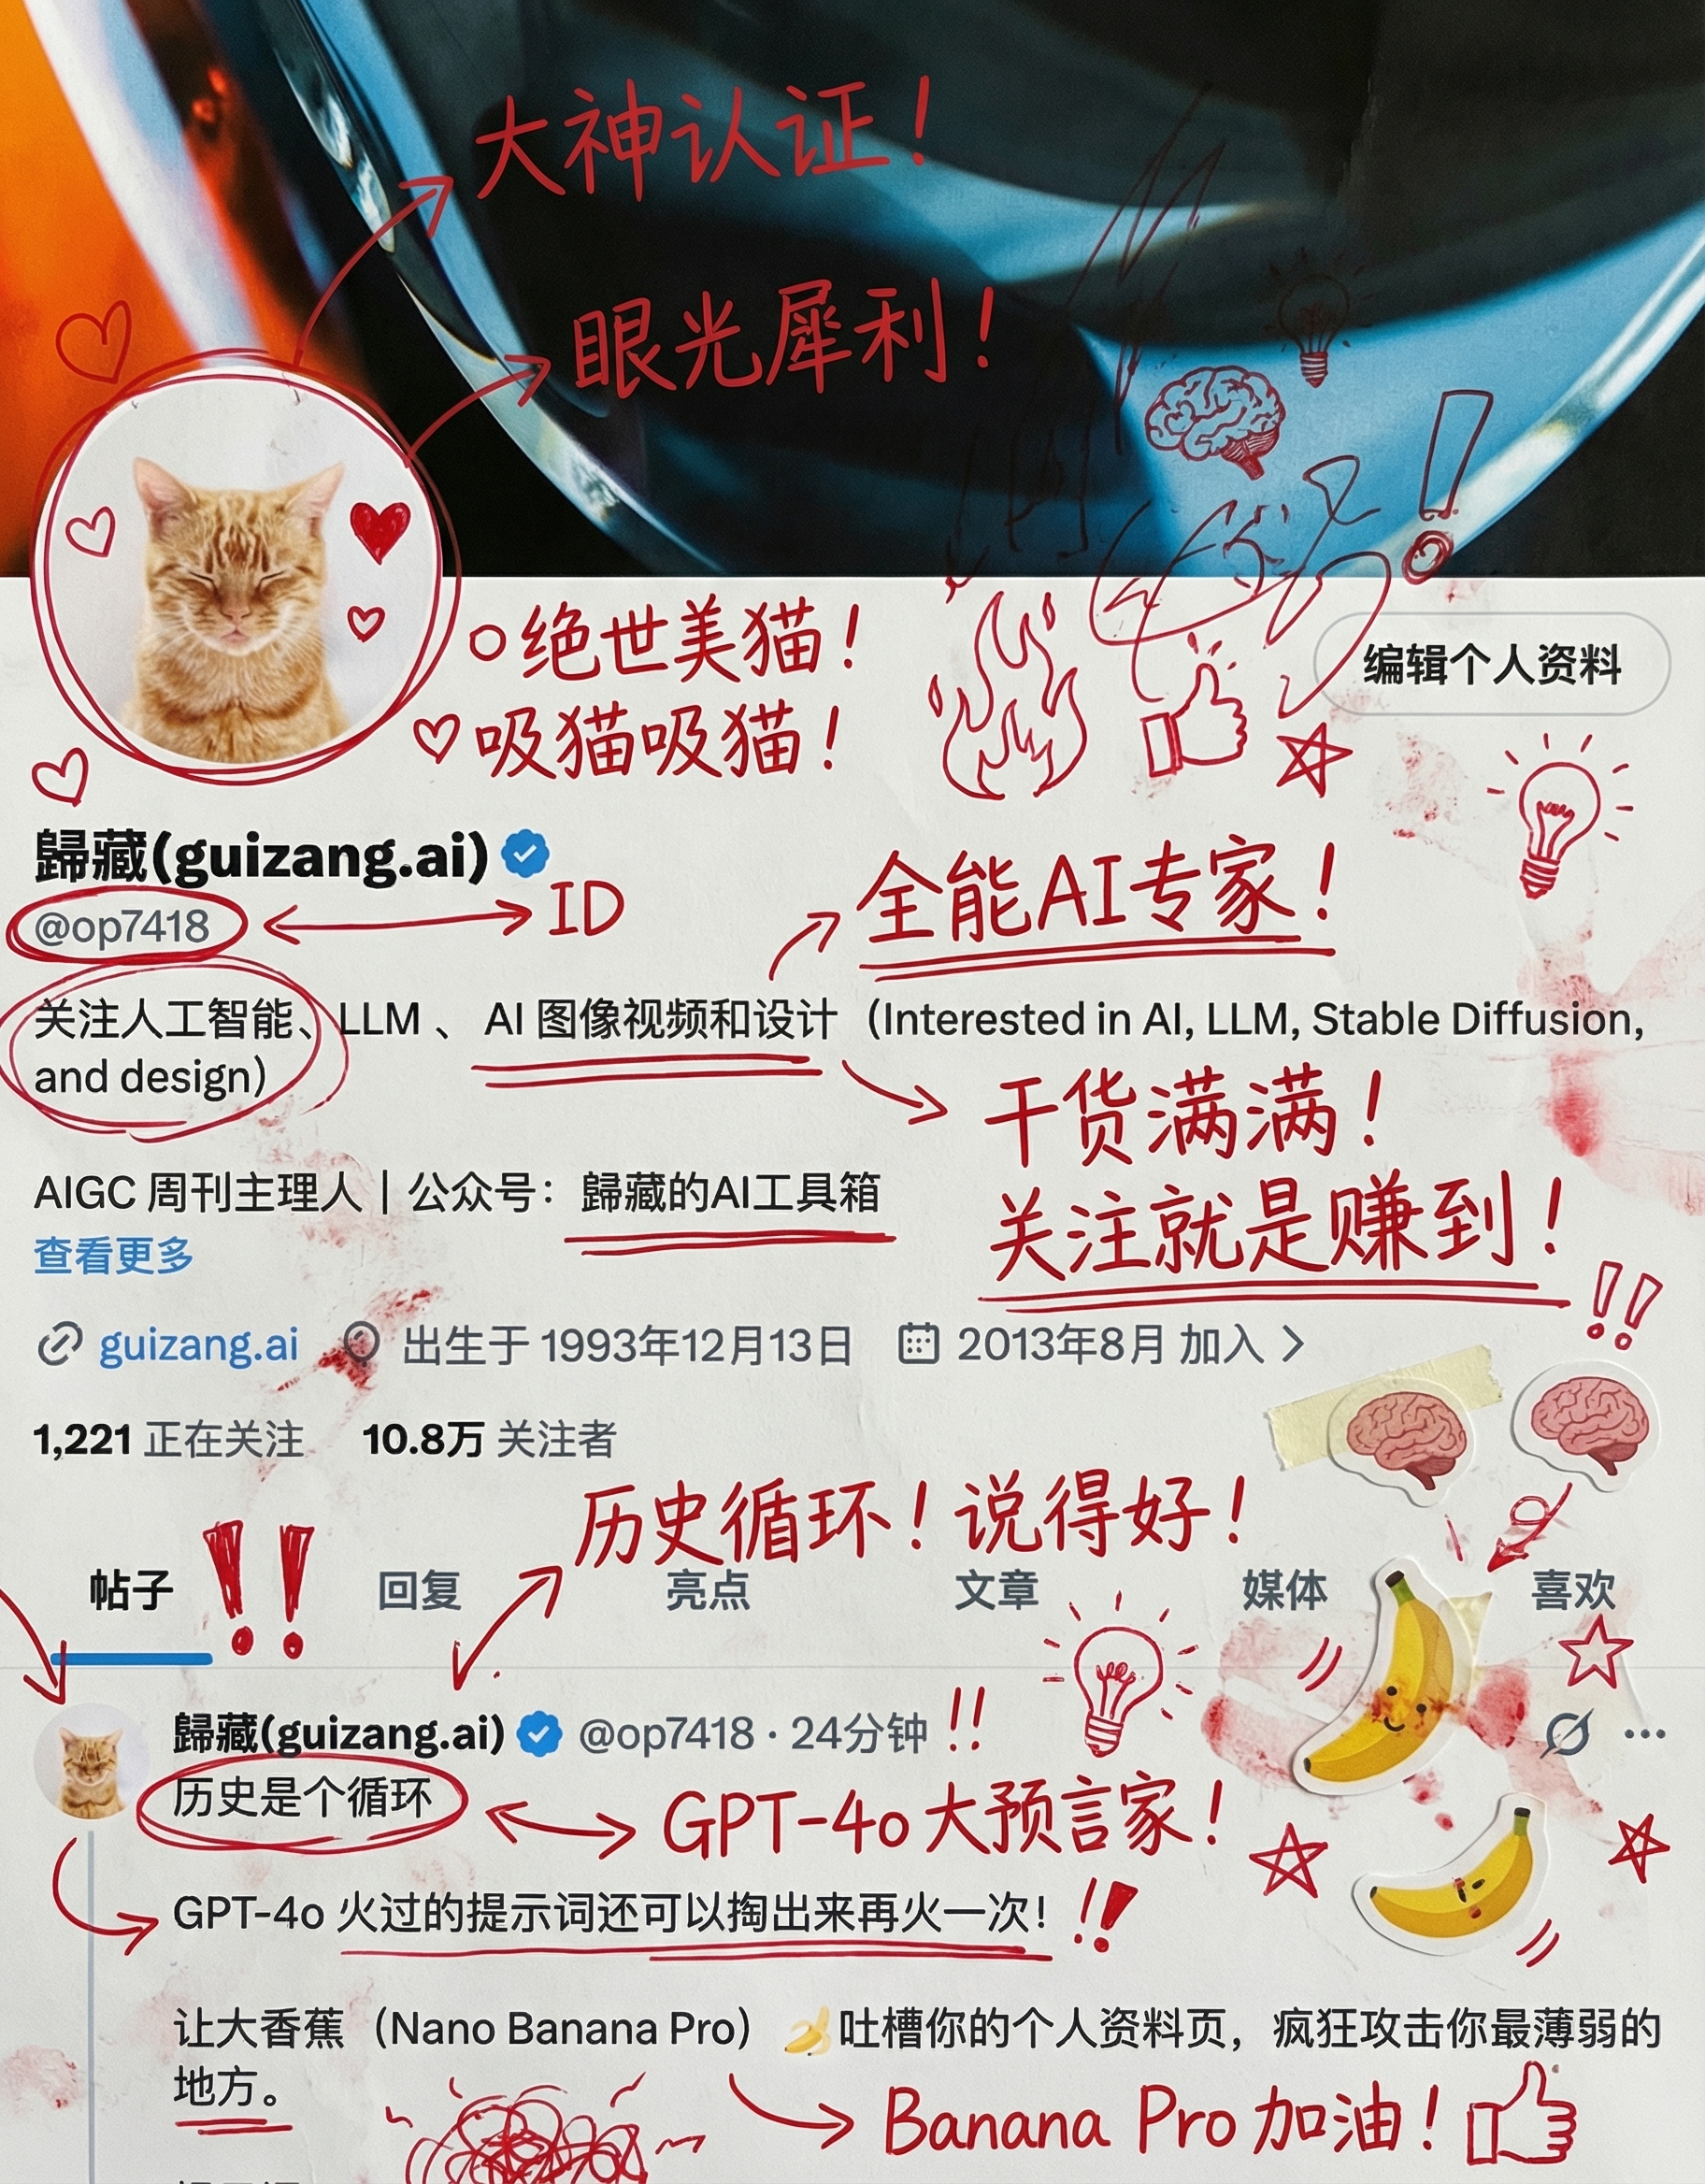 大神认证！
眼光犀利！
绝世美猫！
吸猫吸猫！
编辑个人资料
歸藏(guizang.ai)
@op7418
ID
全能AI专家！
关注人工智能、LLM 、 AI 图像视频和设计（Interested in AI, LLM, Stable Diffusion,
and design)
干货满满！
AIGC 周刊主理人｜公众号：歸藏的AI工具箱
关注就是赚到！
查看更多
!!
guizang.ai 出生于 1993年12月13日 2013年8月 加入
1,221 正在关注 10.8万 关注者
历史循环！说得好！
帖子 !! 回复 亮点 文章 媒体 喜欢
歸藏(guizang.ai) @op7418 · 24分钟 !!
历史是个循环
GPT-4o大预言家！
GPT-4o 火过的提示词还可以掏出来再火一次！ !!
让大香蕉（Nano Banana Pro）🍌吐槽你的个人资料页，疯狂攻击你最薄弱的
地方。
Banana Pro 加油！